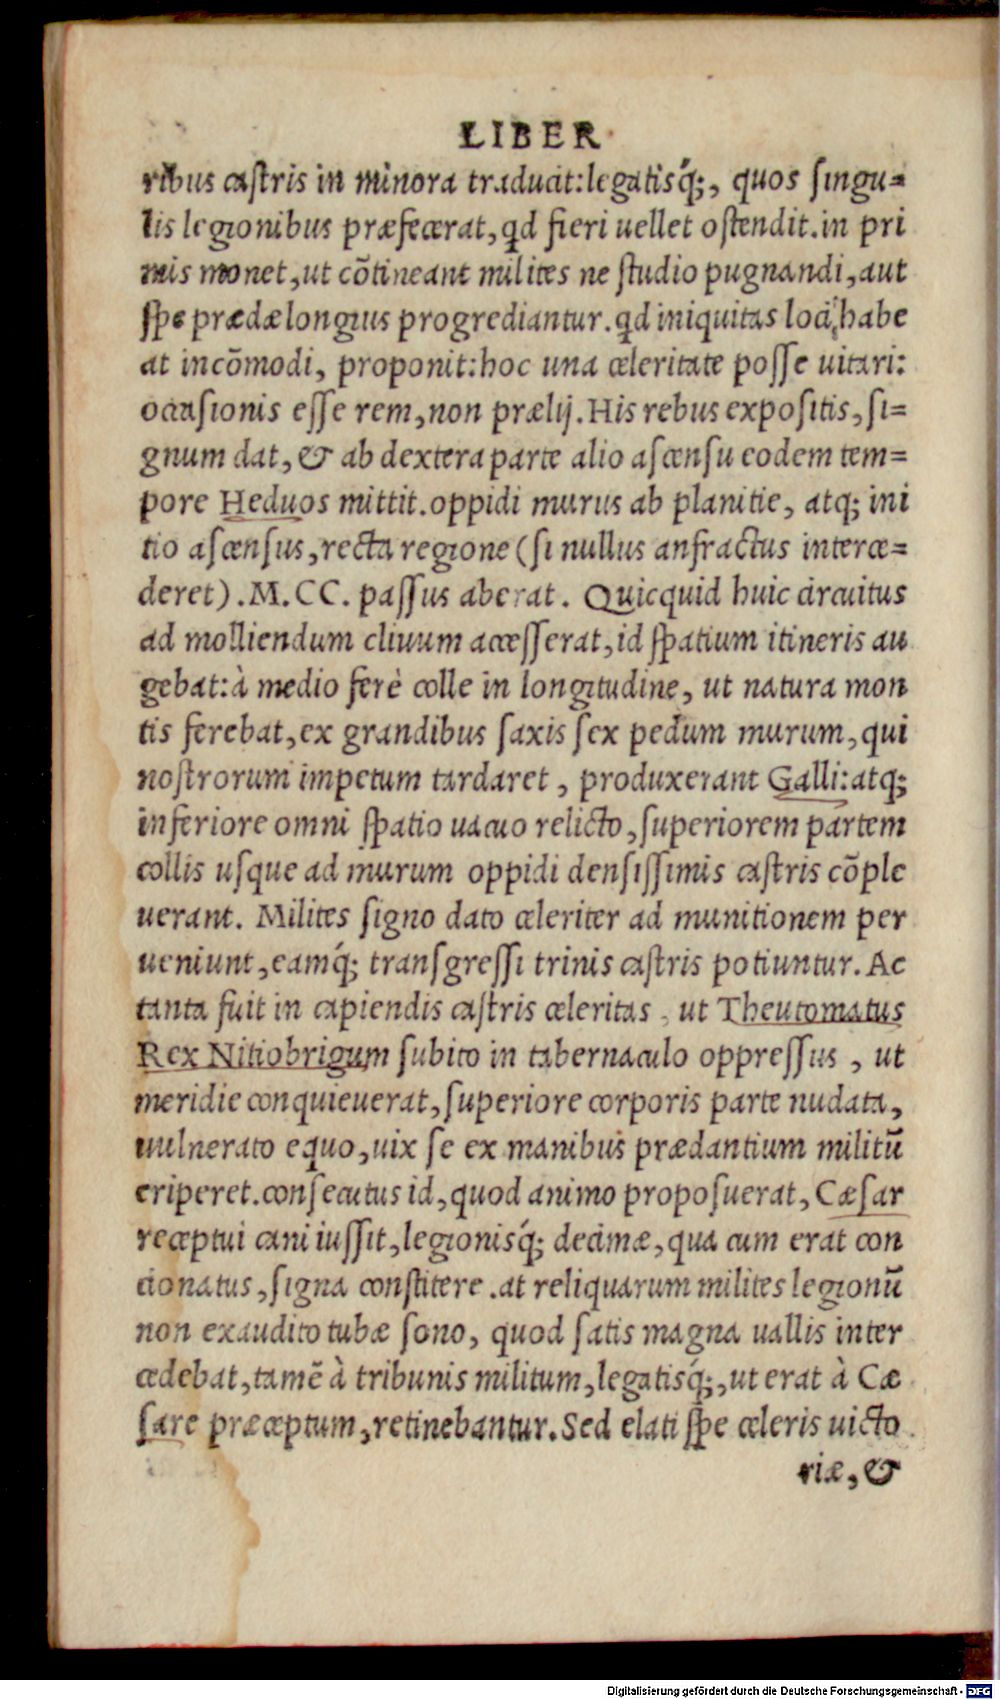 LIBER
ribus castris in minora traducit: legatisq́;, quos singu=
lis legionibus præfecerat, qd fieri uellet ostendit. in pri
mis monet, ut cõtineant milites ne studio pugnandi, aut
spe prædæ longius progrediantur. qd iniquitas loci habe
at incõmodi, proponit: hoc una celeritate posse uitari:
occasionis esse rem, non prælij. His rebus expositis, si=
gnum dat, & ab dextera parte alio ascensu eodem tem=
pore Heduos mittit. oppidi murus ab planitie, atq; ini
tio ascensus, recta regione (si nullus anfractus interce=
deret). M.CC. passus aberat. Quicquid huic circuitus
ad molliendum cliuum accesserat, id spatium itineris au
gebat: à medio ferè colle in longitudine, ut natura mon
tis ferebat, ex grandibus saxis sex pedum murum, qui
nostrorum impetum tardaret, produxerant Galli: atq;
inferiore omni spatio uacuo relicto, superiorem partem
collis usque ad murum oppidi densissimis castris cõple
uerant. Milites signo dato celeriter ad munitionem per
ueniunt, eamq́; transgressi trinis castris potiuntur. Ac
tanta fuit in capiendis castris celeritas, ut Theutomatus
Rex Nitiobrigum subito in tabernaculo oppressus, ut
meridie conquieuerat, superiore corporis parte nudata,
uulnerato equo, uix se ex manibus prædantium militũ
eriperet. consecutus id, quod animo proposuerat, Cæsar
receptui cani iussit, legionisq́; decimæ, qua cum erat con
cionatus, signa constitere. at reliquarum milites legionũ
non exaudito tubæ sono, quod satis magna uallis inter
cedebat, tamẽ à tribunis militum, legatisq́;, ut erat à Cæ
sare præceptum, retinebantur. Sed elati spe celeris uicto
riæ, &
Digitalisierung gefördert durch die Deutsche Forschungsgemeinschaft - DFG